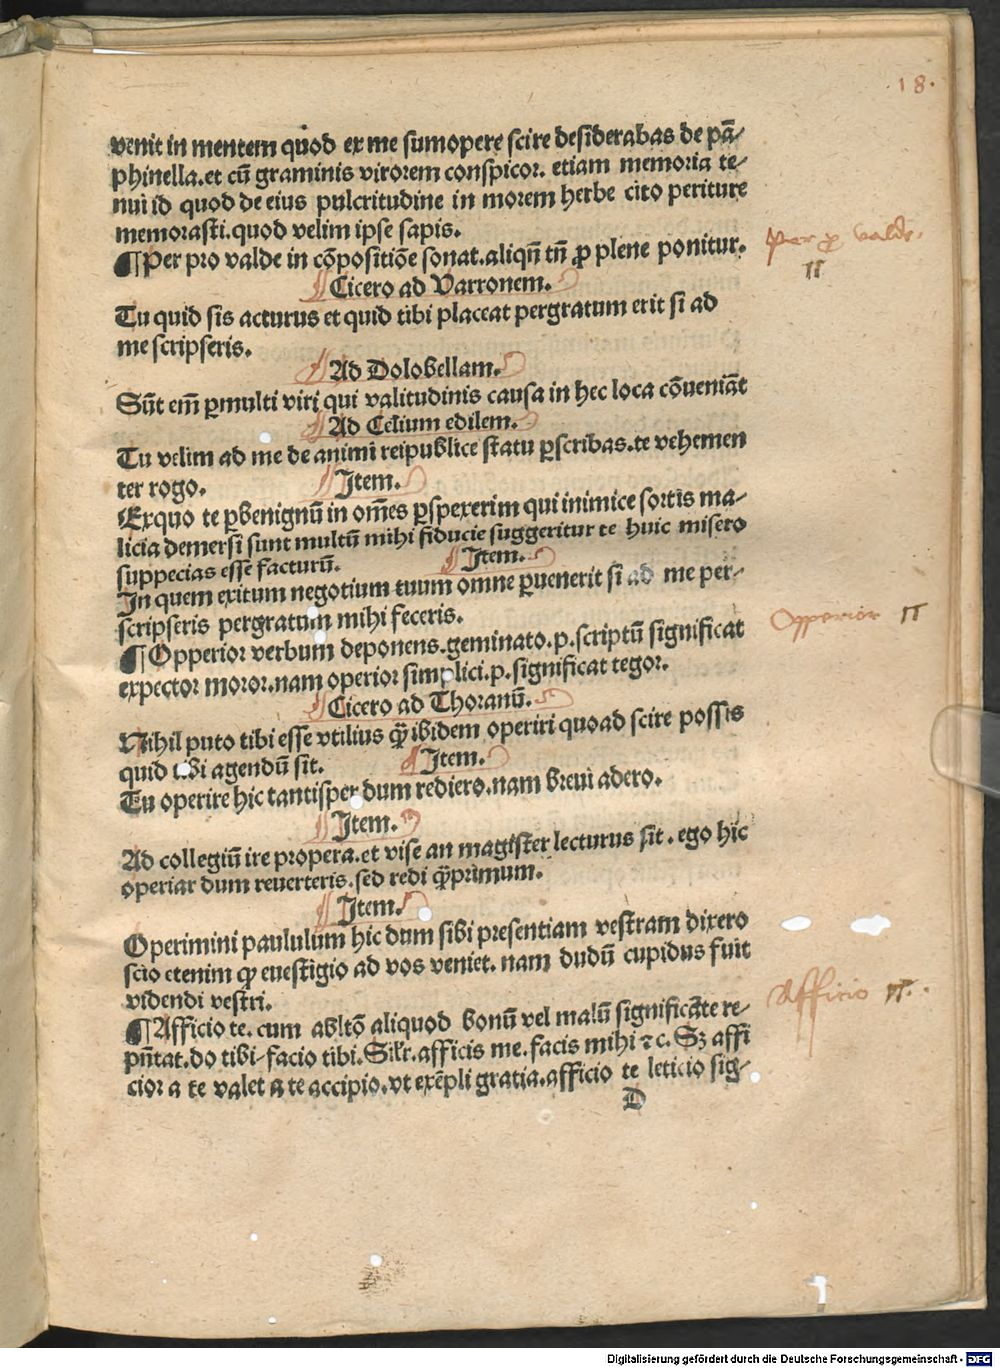 18.
venit in mentem quod ex me sumopere scire desiderabas de pã-
phinella.et cũ graminis virorem conspicor. etiam memoria te-
nui id quod de eius pulcritudine in morem herbe cito periture
memorasti.quod velim ipse sapis.
¶Per pro valde in cõpositiõe sonat.aliqñ tñ ꝓ plene ponitur.
Per ꝓ valde.
¶Cicero ad Varronem.
Tu quid sis acturus et quid tibi placeat pergratum erit si ad
me scripseris.
¶Ad Dolobellam.
Sũt em̃ ꝑmulti viri qui valitudinis causa in hec loca cõueniãt
¶Ad Celium edilem.
Tu velim ad me de animi reipublice statu ꝑscribas.te vehemen
ter rogo. ¶Item.
Exquo te ꝑbenignũ in om̃es ꝑspexerim qui inimice sortis ma-
licia demersi sunt multũ mihi fiducie suggeritur te huic misero
suppecias esse facturũ. ¶Item.
In quem exitum negotium tuum omne ꝑuenerit si ad me per-
scripseris pergratum mihi feceris.
¶Opperior verbum deponens.geminato.p.scriptũ significat
Opperior
expector moror.nam operior simplici.p.significat tegor.
¶Cicero ad Thoranũ.
Nihil puto tibi esse vtilius q̃ ibidem operiri quoad scire possis
quid tibi agendũ sit. ¶Item.
Tu operire hic tantisper dum rediero.nam breui adero.
¶Item.
Ad collegiũ ire propera.et vise an magister lecturus sit. ego hic
operiar dum reuerteris.sed redi q̃primum.
¶Item.
Operimini paululum hic dum sibi presentiam vestram dixero
scio etenim ꝙ euestigio ad vos veniet. nam dudũ cupidus fuit
videndi vestri.
¶Afficio te. cum abltõ aliquod bonũ vel malũ significãte re-
Afficio
pñtat.do tibi-facio tibi.Silr̃.afficis me.facis mihi ⁊c. Sꝫ affi
cior a te valet a te accipio.vt exẽpli gratia.afficio te leticio sig-
D
Digitalisierung gefördert durch die Deutsche Forschungsgemeinschaft - DFG